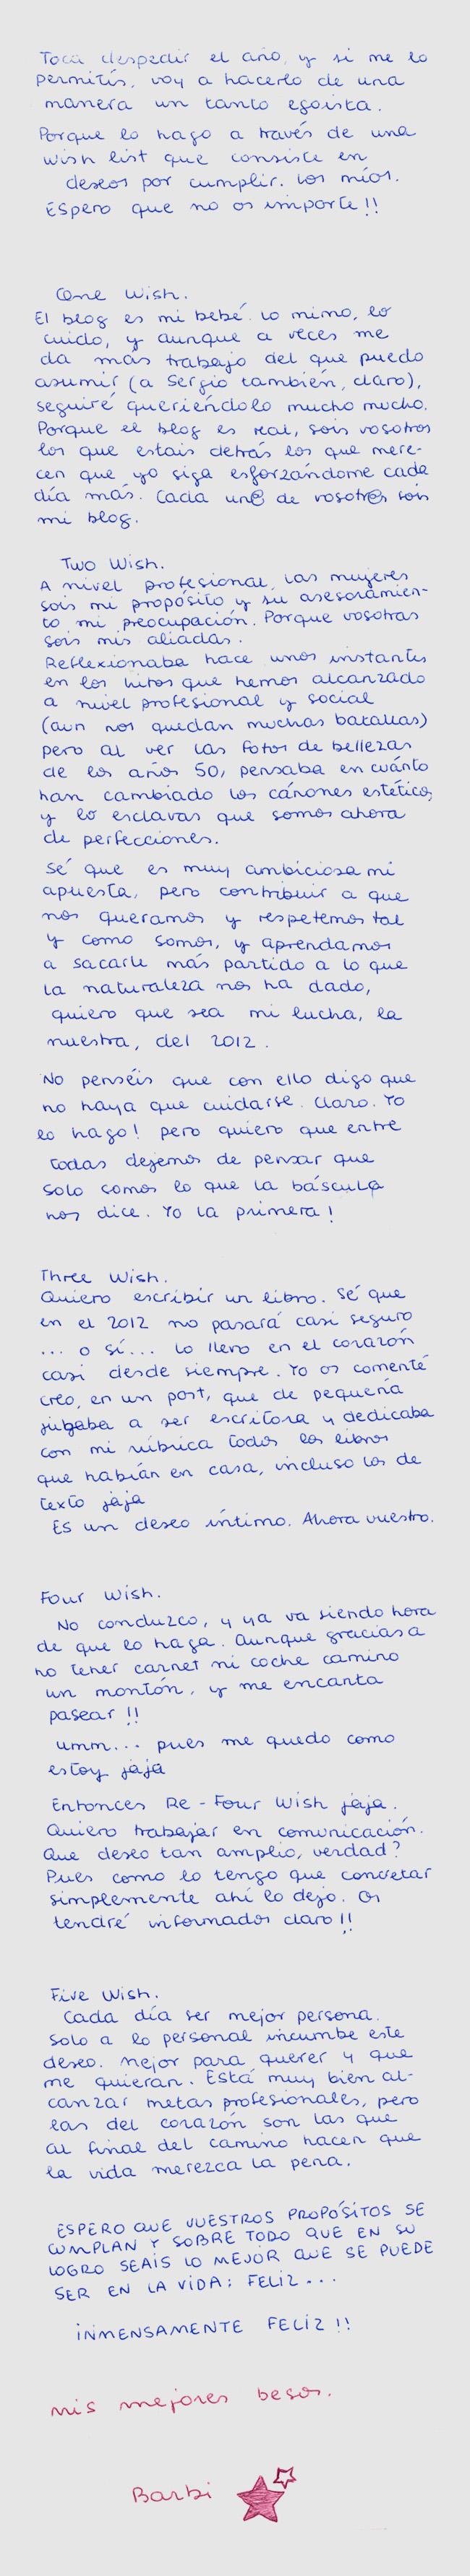 Toca despedir el año, y si me lo
permitís, voy a hacerlo de una
manera un tanto egoista.
Porque lo hago a través de una
wish list que consiste en
deseos por cumplir. Los míos.
Espero que no os importe!!
One Wish.
El blog es mi bebé. Lo mimo, lo
cuido, y aunque a veces me
da más trabajo del que puedo
asumir (a Sergio también, claro),
seguiré queriéndolo mucho mucho.
Porque el blog es real, sois vosotros
los que estais detrás los que mere-
cen que yo siga esforzándome cada
día más. Cada un@ de vosotr@s sois
mi blog.
Two Wish.
A nivel profesional, las mujeres
sois mi propósito y su asesoramien-
to mi preocupación. Porque vosotras
sois mis aliadas.
Reflexionaba hace unos instantes
en los hitos que hemos alcanzado
a nivel profesional y social
(aun nos quedan muchas batallas)
pero al ver las fotos de bellezas
de los años 50, pensaba en cuánto
han cambiado los cánones estéticos,
y lo esclavas que somos ahora
de perfecciones.
Sé que es muy ambiciosa mi
apuesta, pero contribuir a que
nos queramos y respetemos tal
y como somos, y aprendamos
a sacarle más partido a lo que
la naturaleza nos ha dado,
quiero que sea mi lucha, la
nuestra, del 2012.
No penséis que con ello digo que
no haya que cuidarse. Claro. Yo
lo hago! pero quiero que entre
todas dejemos de pensar que
solo somos lo que la báscula
nos dice. Yo la primera!
Three Wish.
Quiero escribir un libro. Sé que
en el 2012 no pasará casi seguro
... o sí... Lo llevo en el corazón
casi desde siempre. Yo os comenté
creo, en un post, que de pequeña
jugaba a ser escritora y dedicaba
con mi rúbrica todos los libros
que habían en casa, incluso los de
texto jaja
Es un deseo íntimo. Ahora vuestro.
Four Wish.
No conduzco, y ya va siendo hora
de que lo haga. Aunque gracias a
no tener carnet ni coche camino
un montón, y me encanta
pasear!!
umm... pues me quedo como
estoy jaja
Entonces Re-Four Wish jaja.
Quiero trabajar en comunicación.
Que deseo tan amplio, verdad?
Pues como lo tengo que concretar
simplemente ahí lo dejo. Os
tendré informados claro!!
Five Wish.
Cada día ser mejor persona.
Solo a lo personal incumbe este
deseo. Mejor para querer y que
me quieran. Está muy bien al-
canzar metas profesionales, pero
las del corazón son las que
al final del camino hacen que
la vida merezca la pena.
ESPERO QUE VUESTROS PROPÓSITOS SE
CUMPLAN Y SOBRE TODO QUE EN SU
LOGRO SEAIS LO MEJOR QUE SE PUEDE
SER EN LA VIDA: FELIZ...
INMENSAMENTE FELIZ!!
Mis mejores besos.
Barbi